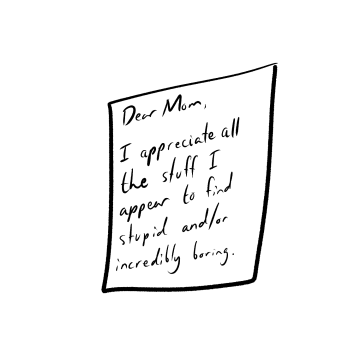 Dear Mom,
I appreciate all
the stuff I
appear to find
stupid and/or
incredibly boring.